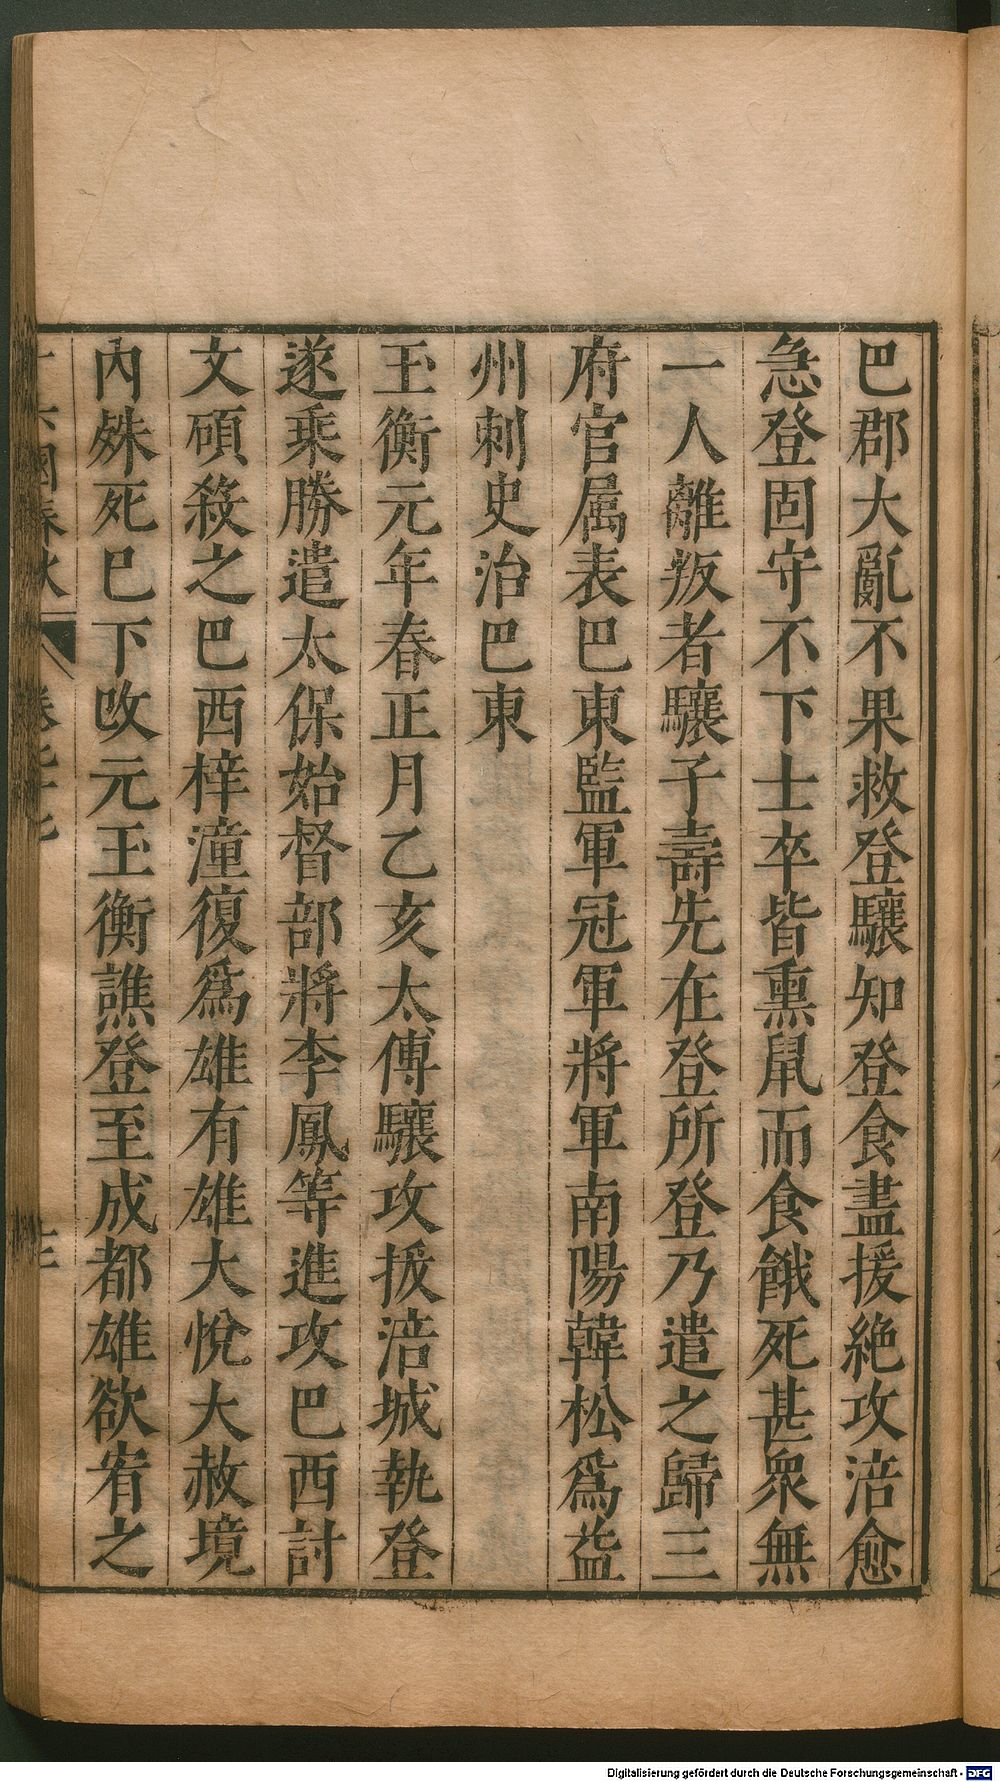 巴郡大亂不果救登驤知登食盡援絶攻涪愈
急登固守不下士卒皆熏鼠而食餓死甚衆無
一人離叛者驤子壽先在登所登乃遣之歸三
府官属表巴東監軍冠軍將軍南陽韓松爲益
州刺史治巴東
玉衡元年春正月乙亥太傅驤攻拔涪城執登
遂乗勝遣太保始督部將李鳳等進攻巴西討
文碩殺之巴西梓潼復爲雄有雄大悅大赦境
内殊死巳下改元玉衡譙登至成都雄欲宥之
國春秋
Digitalisierung gefördert durch die Deutsche Forschungsgemeinschaft - DFG